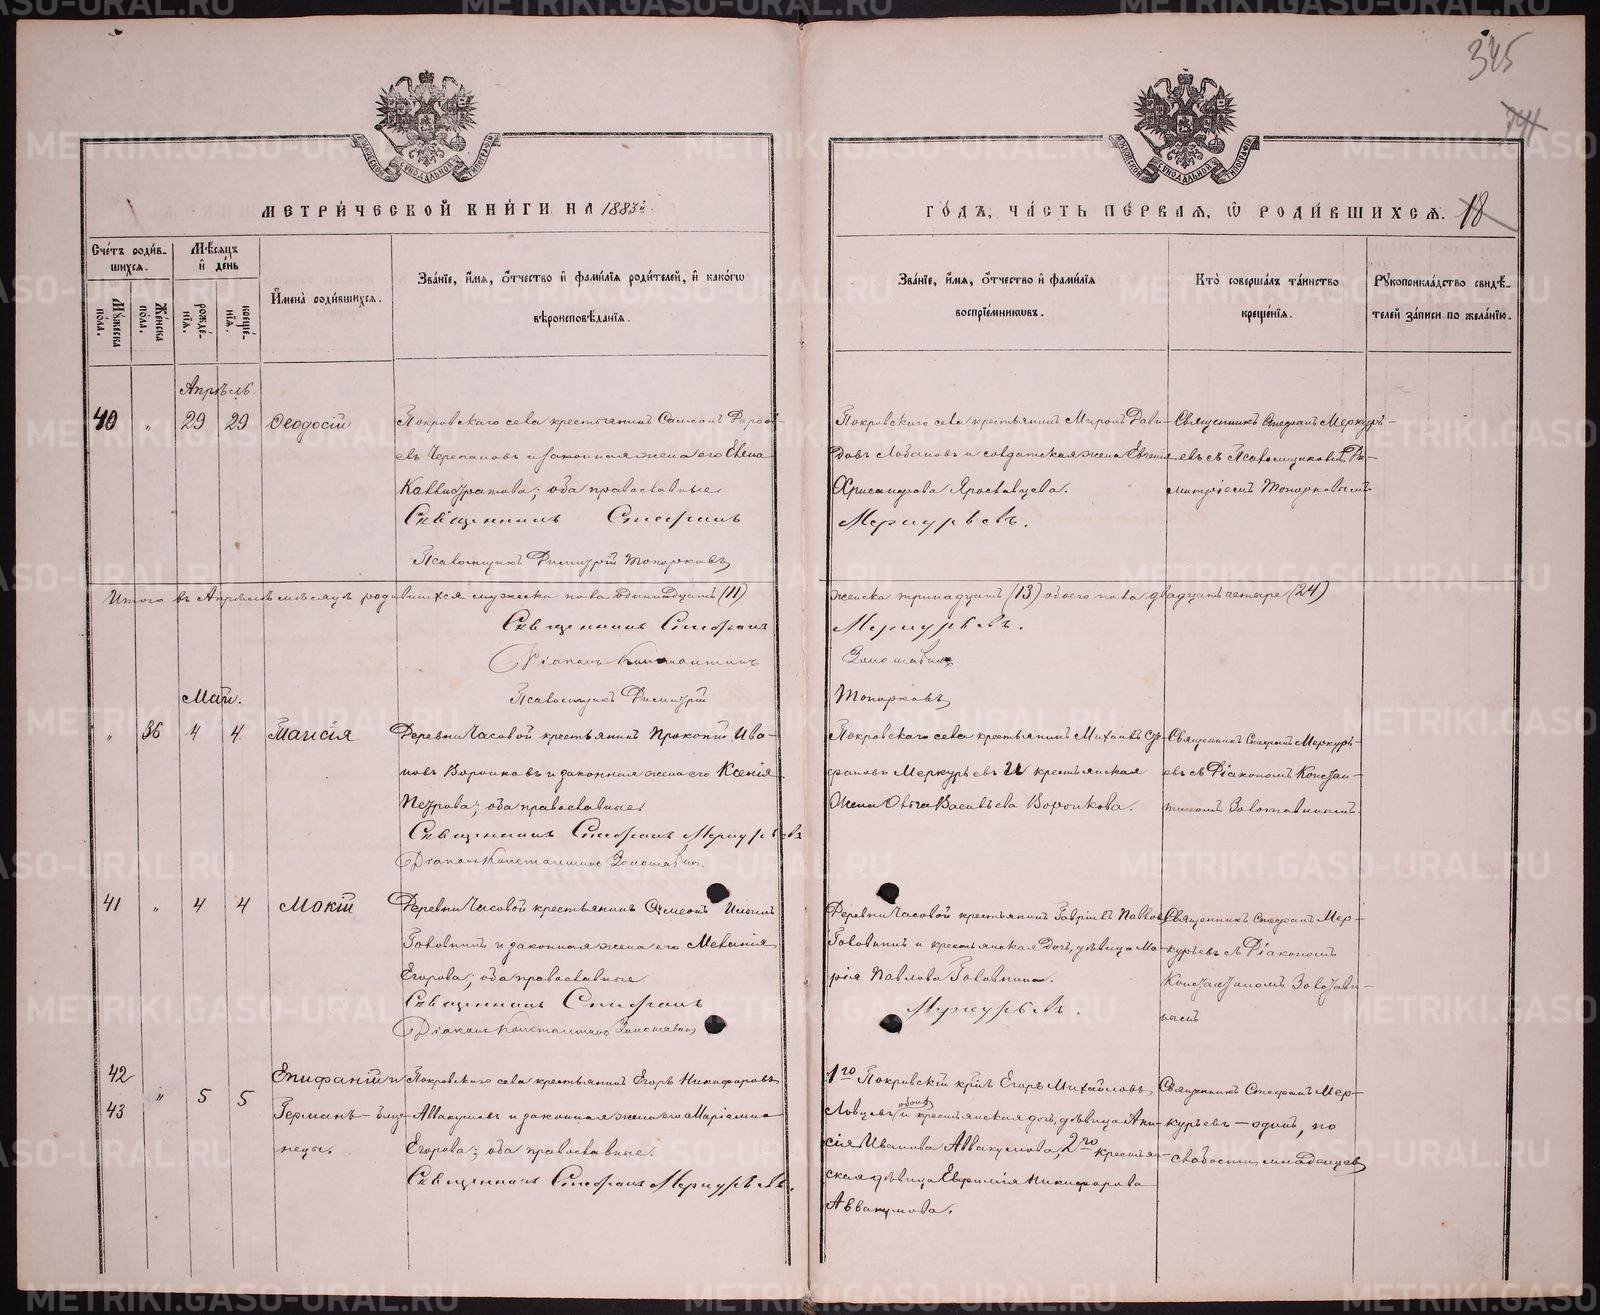 345
741
МЕТРИ́ЧЕСКОЙ КНИ́ГИ НА 1883й
ГО́ДЪ, ЧА́СТЬ ПЕ́РВАЯ, Ѡ РОДИ́ВШИХСЯ. 18
Сче́тъ роди́вшихся.
Мѣ́сяцъ и́ де́нь
И҆мена̀ роди́вшихся.
Зва́нїе, и҆́мя, ѻ҆́тчество и҆ фами́лїя роди́телей, и҆ како́гѡ вѣроисповѣ́данїя.
Зва́нїе, и҆́мя, ѻ҆́тчество и҆ фами́лїя воспрїе́мникѡвъ.
Кто̀ соверша́лъ та́инство креще́нїя.
Рꙋкоприкла́дство свидѣ́телей за́писи по жела́нїю.
Мꙋ́жеска по́ла.
Же́нска по́ла.
рожде́нїя.
креще́нїя.
Апрѣль.
40 " 29 29 Ѳеодосій
Покровскаго села крестьянинъ Самсонъ
евъ Черепановъ и законная жена его Елена
Каллистратова; оба православные.
Священникъ Стефанъ
Псаломщикъ Димитрій Топорковъ
Покровскаго села крестьянинъ Миронъ Дави-
довъ Лобановъ и солдатская жена Евгенія
Хрисанфова Ярославцева.
Меркурьевъ.
Священникъ Стефанъ Меркурь-
евъ съ Псаломщикомъ Ди-
митріемъ Топорковымъ.
Итого въ Апрѣлѣ мѣсяцѣ родившихся мужеска пола одиннадцать (11)
женска тринадцать (13) обоего пола двадцать четыре (24)
Священникъ Стефанъ
Меркурьевъ.
Діаконъ Константинъ
Золотавинъ
Псаломщикъ Димитрій
Топорковъ
Май.
" 36 4 4 Таисія
Деревни Часовой крестьянинъ Прокопій Ива-
новъ Воронковъ и законная жена его Ксенія
Петрова; оба православные.
Священникъ Стефанъ Меркурьевъ
Діаконъ Константинъ Золотавинъ.
Покровскаго села крестьянинъ Михаилъ Сте-
фановъ Меркурьевъ и крестьянская
жена Ольга Васильева Воронкова.
Священникъ Стефанъ Меркурь-
евъ съ Діакономъ Констан-
тиномъ Золотавинымъ.
41 " 4 4 Мокій
Деревни Часовой крестьянинъ Сумеонъ
Головинъ и законная жена его Меланія
Егорова; оба православные.
Священникъ Стефанъ
Діаконъ Константинъ Золотавинъ
Деревни Часовой крестьянинъ Гавріилъ Павловъ
Головинъ и крестьянская дочь, дѣвица Ма-
рія Павлова Головнина.
Меркурьевъ.
Священникъ Стефанъ Мер-
курьевъ съ Діакономъ
Константиномъ Золотави-
нымъ
42
43 " 5 5
Епифаній и
Германъ - близ-
нецы.
Покровскаго села крестьянинъ Егоръ Никифоровъ
Аввакумовъ и законная жена его Маріамна
Егорова; оба православные.
Священникъ Стефанъ Меркурьевъ.
1го Покровскій крнъ Егоръ Михайловъ
Ловцевъ и крестьянская дочь, дѣвица Ани-
сія Иванова Аввакумова, 2го крестьян-
ская дѣвица Евфимія Никифорова
Аввакумова.
Священникъ Стефанъ Мер-
курьевъ - одинъ, по
слабости младенцевъ
METRIKI.GASO-URAL.RU